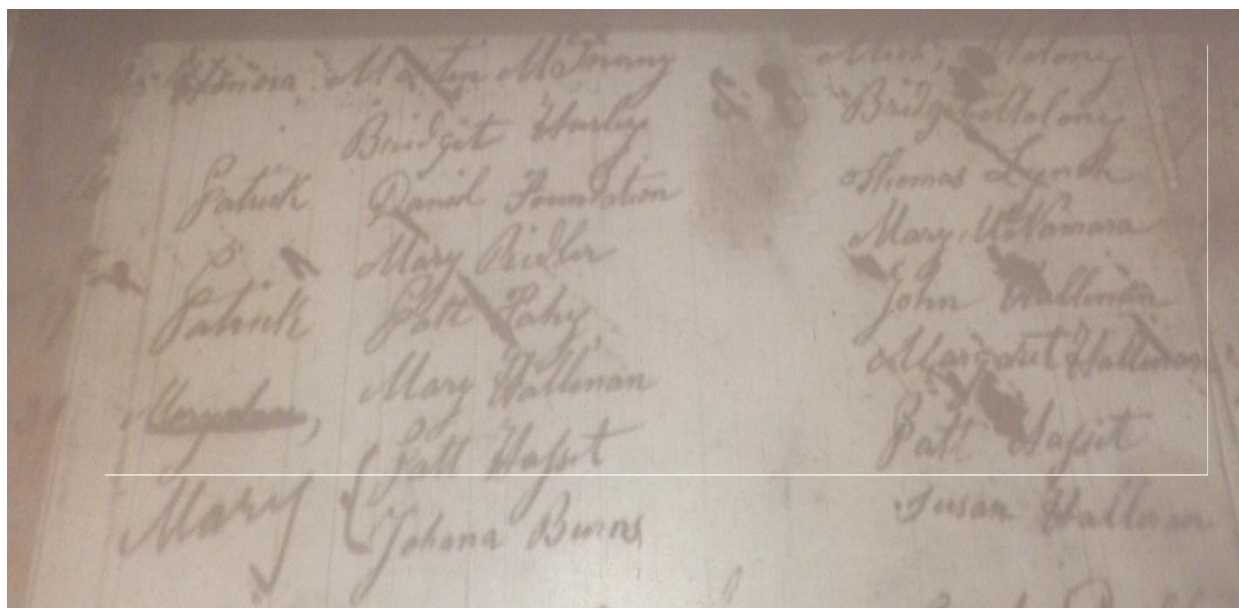 Honora Martin McInerny Mich, Molony
Bridget Hurley Bridg Molony
Patrick Daniel Foundation Thomas Lynch
Mary Ridler Mary McNamara
Patrick Patt Fahy John Hallinan
Mary Hallinan Margaret Hallinan
Patt Hasset Patt Hasset
Mary Johana Burns Susan Halloran